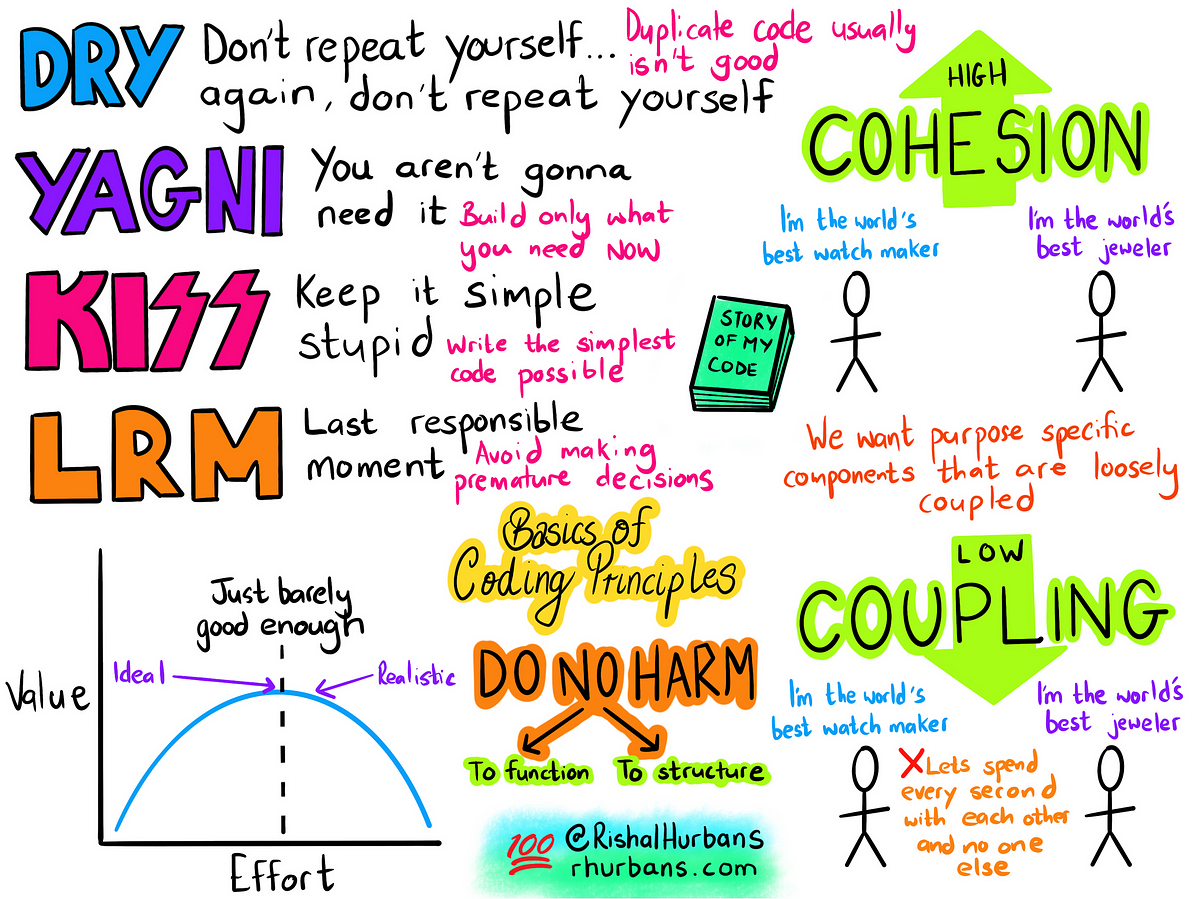 DRY
Don't repeat yourself...
again, don't repeat yourself
Duplicate code usually
isn't good
YAGNI
You aren't gonna
need it
Build only what
you need NOW
KISS
Keep it simple
stupid
Write the simplest
code possible
LRM
Last responsible
moment
Avoid making
premature decisions
STORY
OF MY
CODE
HIGH
COHESION
I'm the world's
best watch maker
I'm the world's
best jeweler
We want purpose specific
components that are loosely
coupled
Basics of
Coding Principles
Just barely
good enough
Ideal
Realistic
Value
Effort
DO NO HARM
To function
To structure
100
@RishalHurbans
rhurbans.com
LOW
COUPLING
I'm the world's
best watch maker
I'm the world's
best jeweler
XLets spend
every second
with each other
and no one
else